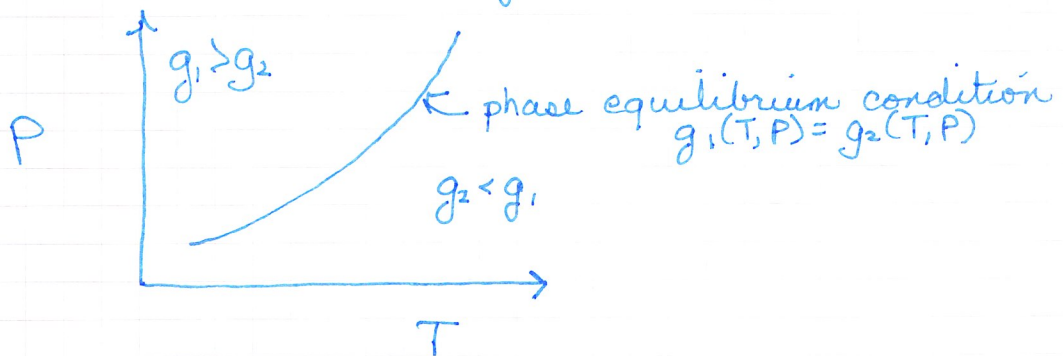 g₁ > g₂
phase equilibrium condition
g₁(T, P) = g₂(T, P)
P
g₂ < g₁
T